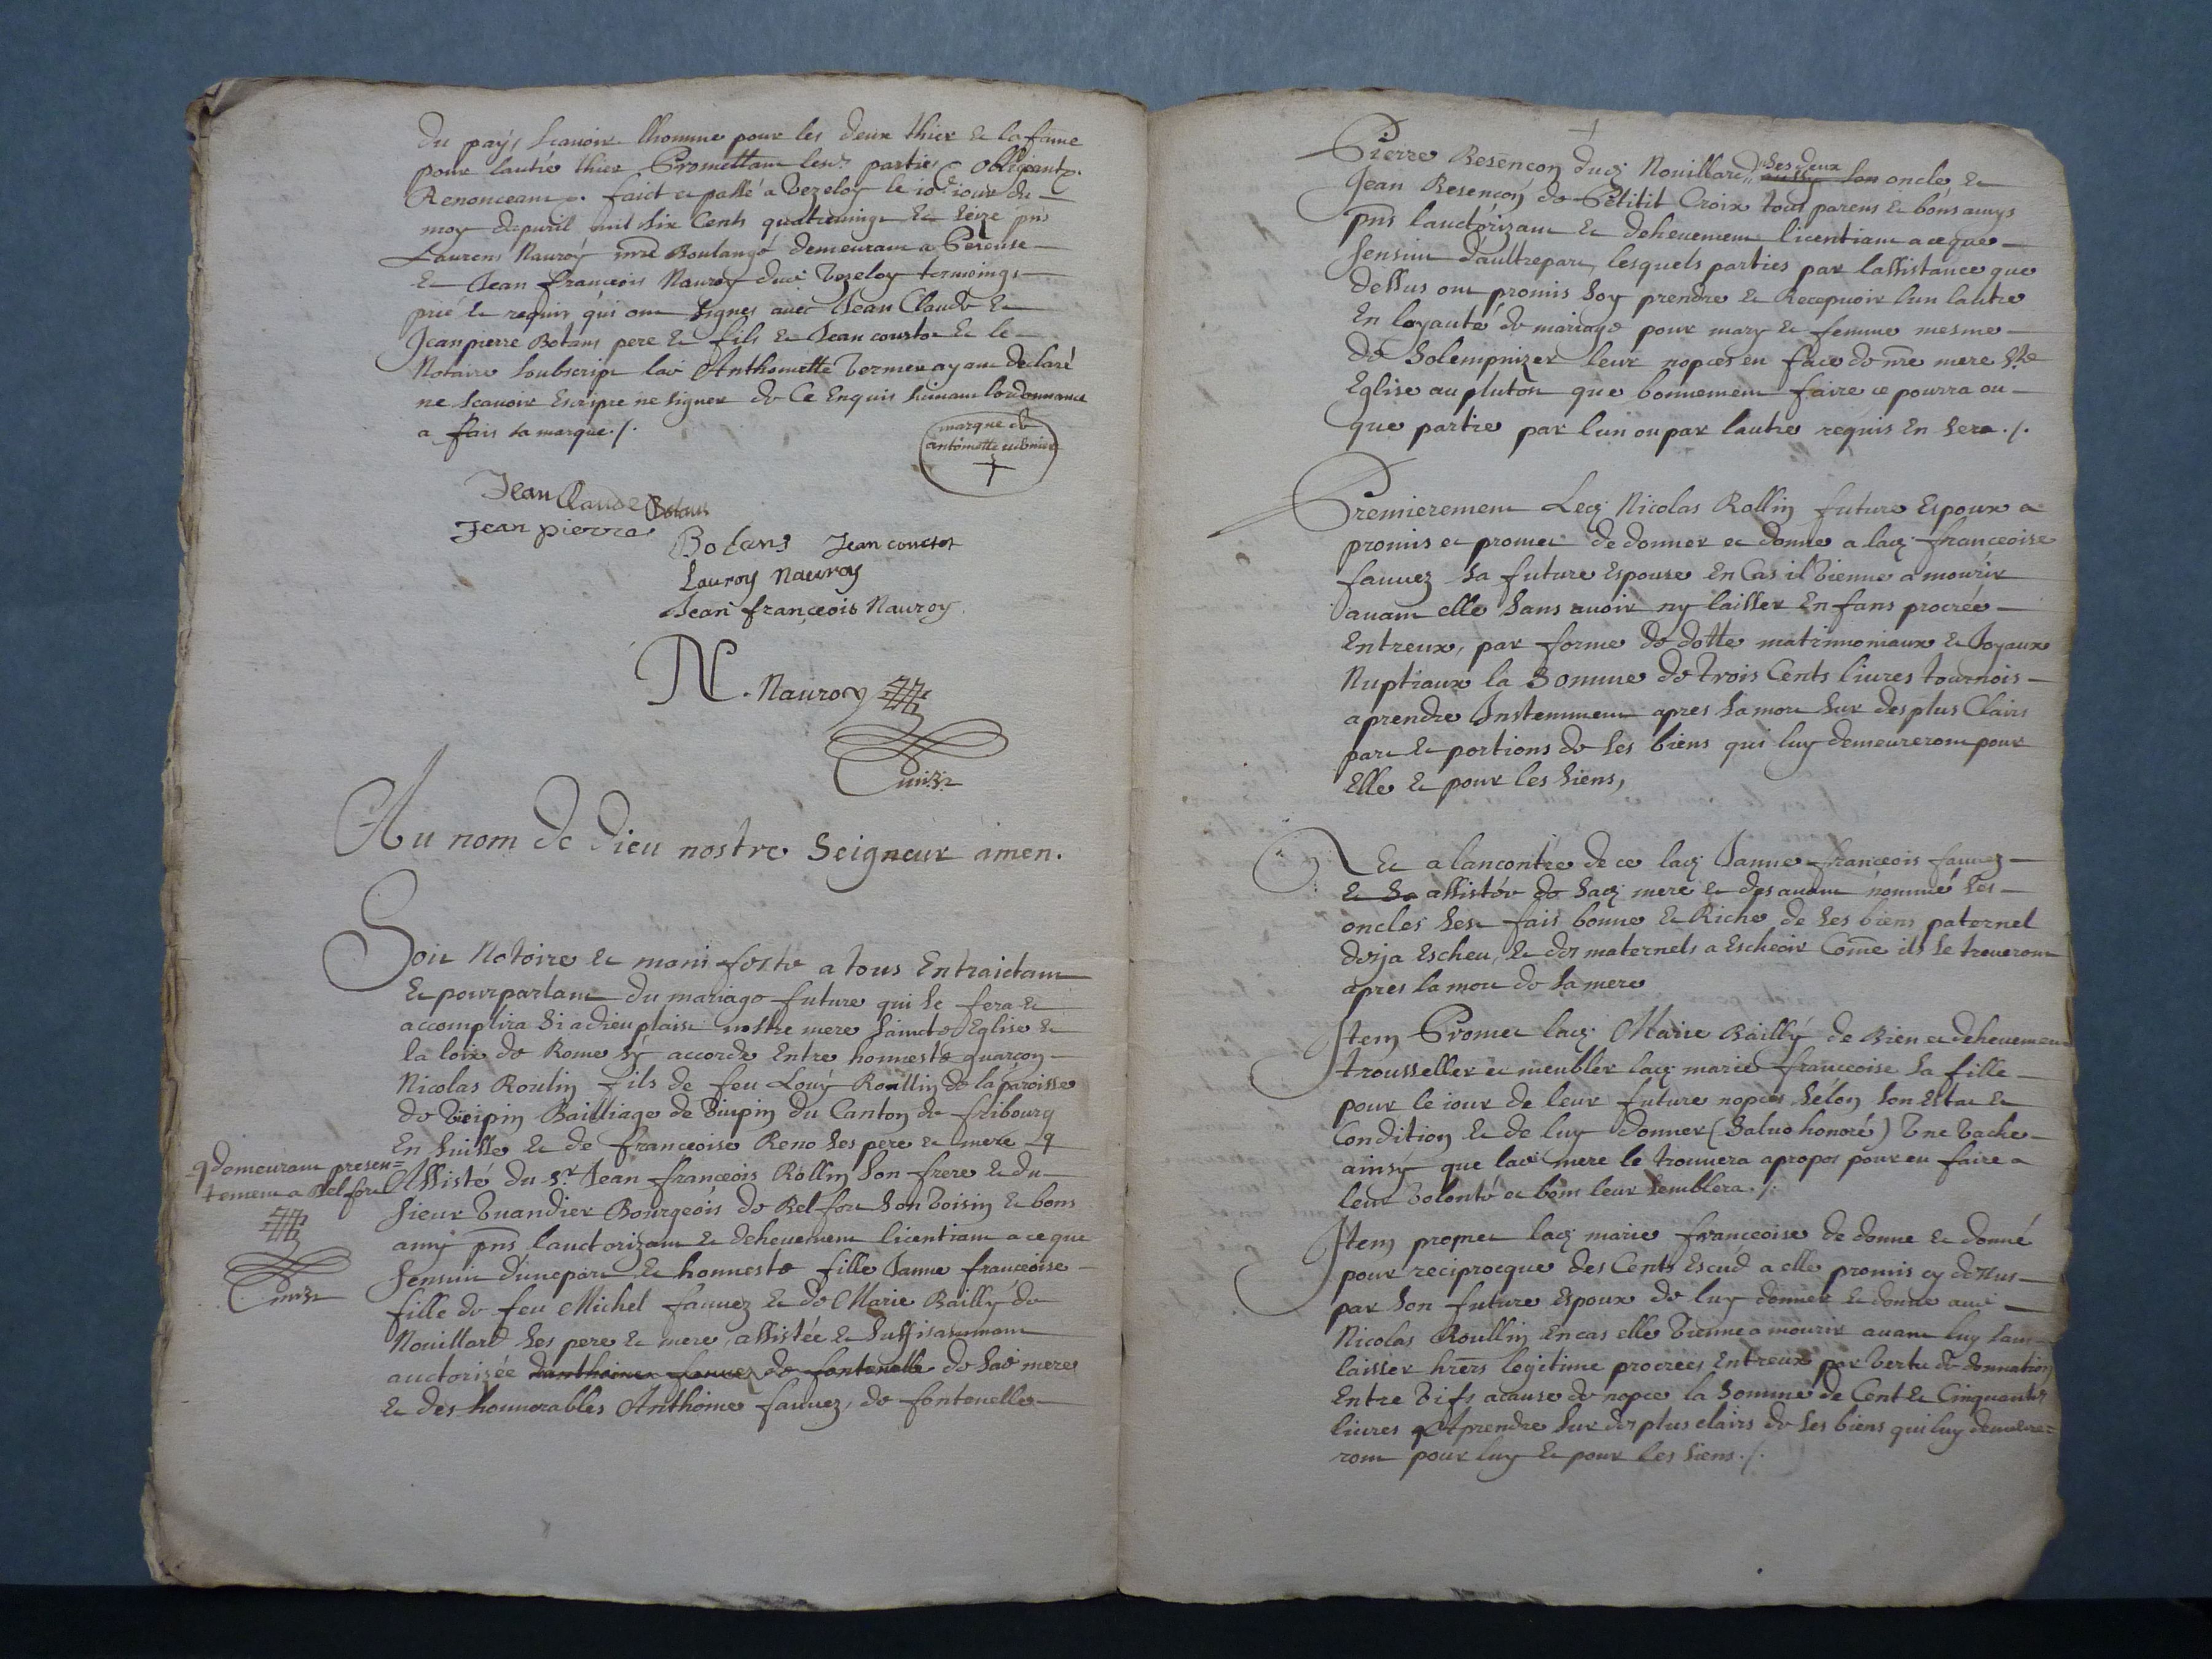 du pays scauoir lhomme pour les deux thier et la fame
pour lautre thier Promettant leurs parties Obligeant &.
Renonceant &. faict et passé a Vezeloy le 10e iour du
moy dapuril mil six Cents quatreuingt et seize pnt
Laurens Nauroy mre Boulangé demeurant a Pereuse
Et Jean Franceois Nauroy dud Vezeloy termoings
prié et requis qui ont signes auec Jean Claude et
Jeanpierre Botans pere et fils et Jean coustot et le
Notaire soubscript lad Anthoinette Vermer ayant declaré
ne scauoir Escripre ne signer de Ce Enquis suiuant lordonnance
a fais sa marque ./.
marque de
antoinette
Jean Claude Botans
Jean pierre
Botans Jean coustot
Lauroy Nauroy
Jean franceois Nauroy
N. Nauroy
Au nom de Dieu nostre Seigneur amen.
Soit Notoire et manifeste a tous Entraictant
Et pourparlant du mariage future qui se fera et
accomplira si a dieu plaist nostre mere saincte Eglise et
la loix de Rome sy accorde Entre honneste guarcon
Nicolas Roulin fils de feu Louy Roullin de la paroisse
de Vuipin Bailliage de Vuipin du Canton de fribourg
En Suisse et de franceoise Reno ses pere et mere
demeurant presen=
tement a Belfort
Assisté du Sr Jean franceois Rollin son frere et du
sieur Vuandier Bourgeois de Belfort son Voisin et bons
amy pnts lauctorizant et dehuement licentiant a ce que
sensuit dune part et honneste fille Janne franceoise
fille de feu Michel fauuez et de Marie Bailly de
Nouillard ses pere et mere, assistée et suffisamment
auctorisée danthoinne fauuez de fontenelle de sad mere
et des honnorables Anthoine fauuez, de fontenelle
Pierre Besencon dud Nouillard, ses deux aussy son oncle et
Jean Besencon de Petitit Croix tous parens et bons amys
pnts lauctorizant et dehuement licentiant a ce que
sensuit daultrepart, lesquels parties par lassistance que
dessus ont promis soy prendre et Recepuoir lun lautre
En loyauté de mariage pour mary et femme mesme
de Solempnizer leur nopces en face de nre mere Ste
Eglise au plutost que bonnement faire ce pourra ou
que partie par lun ou par lautre requis En sera ./.
Premierement Led Nicolas Rollin future Espoux a
promis et promet de donner et donne a lad franceoise
fauuez sa future Espouse En Cas il Vienne a mourir
auant elle sans auoir ny laisser Enfans procrée
Entreux, par forme de dotte matrimoniaux et Joyaux
Nuptiaux la Somme de trois Cents liures tournois
a prendre Instemment apres sa mort sur des plus Clairs
part et portions de ses biens qui luy demeureront pour
Elle et pour les siens,
Et a lancontre de ce lad Janne franceois fauuez
et sa assistée de sad mere et des auant nommé ses
oncles sest fais bonne et Riche de ses biens paternel
desja Escheu, et des maternels a Escheoir Come ils se troueront
apres la mort de sa mere
Item Promet lad Marie Bailly de Bien et dehuement
trousseller et meubler lad marie franceoise sa fille
pour le iour de leur future nopces selon son Estat et
Condition et de luy donner (saluo honoré) Vne Vache
ainsy que lad mere le trouuera a propos pour en faire a
leur Volonté et bon leur semblera ./.
Item promet lad marie franceoise de donne et donné
pour reciprocque des Cents Escud a elle promis cy dessus
par son future Espoux de luy donner et donne aud
Nicolas Roullin En cas elle Vienne a mourir auant luy sans
laisser hrers legitime procrées Entreux par Vertu de donnation
Entre Vifs a cause de nopce la Somme de Cent et Cinquantes
liures A prendre sur des plus clairs de ses biens qui luy demeure=
ront pour luy et pour les siens ./.